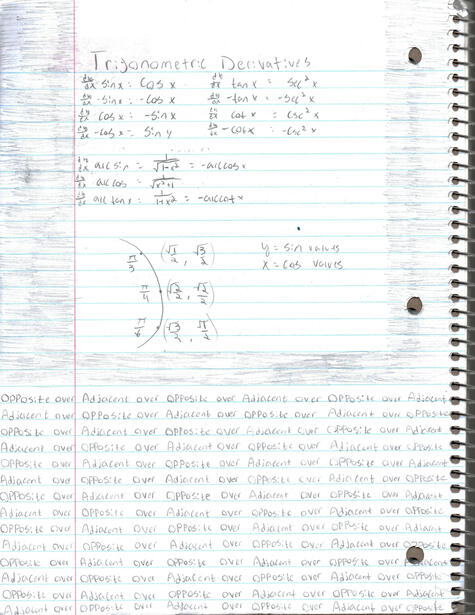 Trigonometric Derivatives
dy/dx sin x = cos x dy/dx tan x = sec² x
dy/dx -sin x = -cos x dy/dx -tan x = -sec² x
dy/dx cos x = -sin x dy/dx cot x = csc² x
dy/dx -cos x = sin x dy/dx -cot x = -csc² x
dy/dx arc sin = 1/√(1-x²) = -arccos x
dy/dx arc cos = 1/√(x²+1)
dy/dx arc tan x = 1/(1+x²) = -arccot x
π/3 (√1/2, √3/2) y = sin values
x = cos values
π/4 (√2/2, √2/2)
π/6 (√3/2, √1/2)
Opposite over Adjacent over Opposite over Adjacent over Opposite over Adjacent
Adjacent over Opposite over Adjacent over Opposite over Adjacent over Opposite
Opposite over Adjacent over Opposite over Adjacent over Opposite over Adjacent
Adjacent over Opposite over Adjacent over Opposite over Adjacent over Opposite
Opposite over Adjacent over Opposite over Adjacent over Opposite over Adjacent
Adjacent over Opposite over Adjacent over Opposite over Adjacent over Opposite
Opposite over Adjacent over Opposite over Adjacent over Opposite over Adjacent
Adjacent over Opposite over Adjacent over Opposite over Adjacent over Opposite
Opposite over Adjacent over Opposite over Adjacent over Opposite over Adjacent
Adjacent over Opposite over Adjacent over Opposite over Adjacent over Opposite
Opposite over Adjacent over Opposite over Adjacent over Opposite over Adjacent
Adjacent over Opposite over Adjacent over Opposite over Adjacent over Opposite
Opposite over Adjacent over Opposite over Adjacent over Opposite over Adjacent
Adjacent over Opposite over Adjacent over Opposite over Adjacent over Opposite